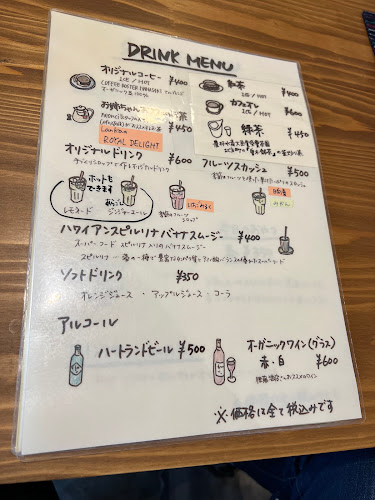 DRINK MENU
オリジナルコーヒー ¥400
ICE / HOT
紅茶 ¥400
ICE / HOT
カフェオレ ¥600
ICE / HOT
お姉ちゃん 茶 ¥450
ROYAL DELIGHT
緑茶 ¥450
オリジナルドリンク ¥600
手づくりシロップで作るオリジナルドリンク
フルーツスカッシュ ¥500
ホットも
できます
レモネード
ジンジャーエール
季節のフルーツ
シロップ
みかん
ハワイアンスピルリナバナナスムージー ¥400
スーパーフード スピルリナ入りのバナナスムージー
ソフトドリンク ¥350
オレンジジュース ・ アップルジュース ・ コーラ
アルコール
ハートランドビール ¥500
オーガニックワイン(グラス)
赤・白 ¥600
※価格は全て税込みです